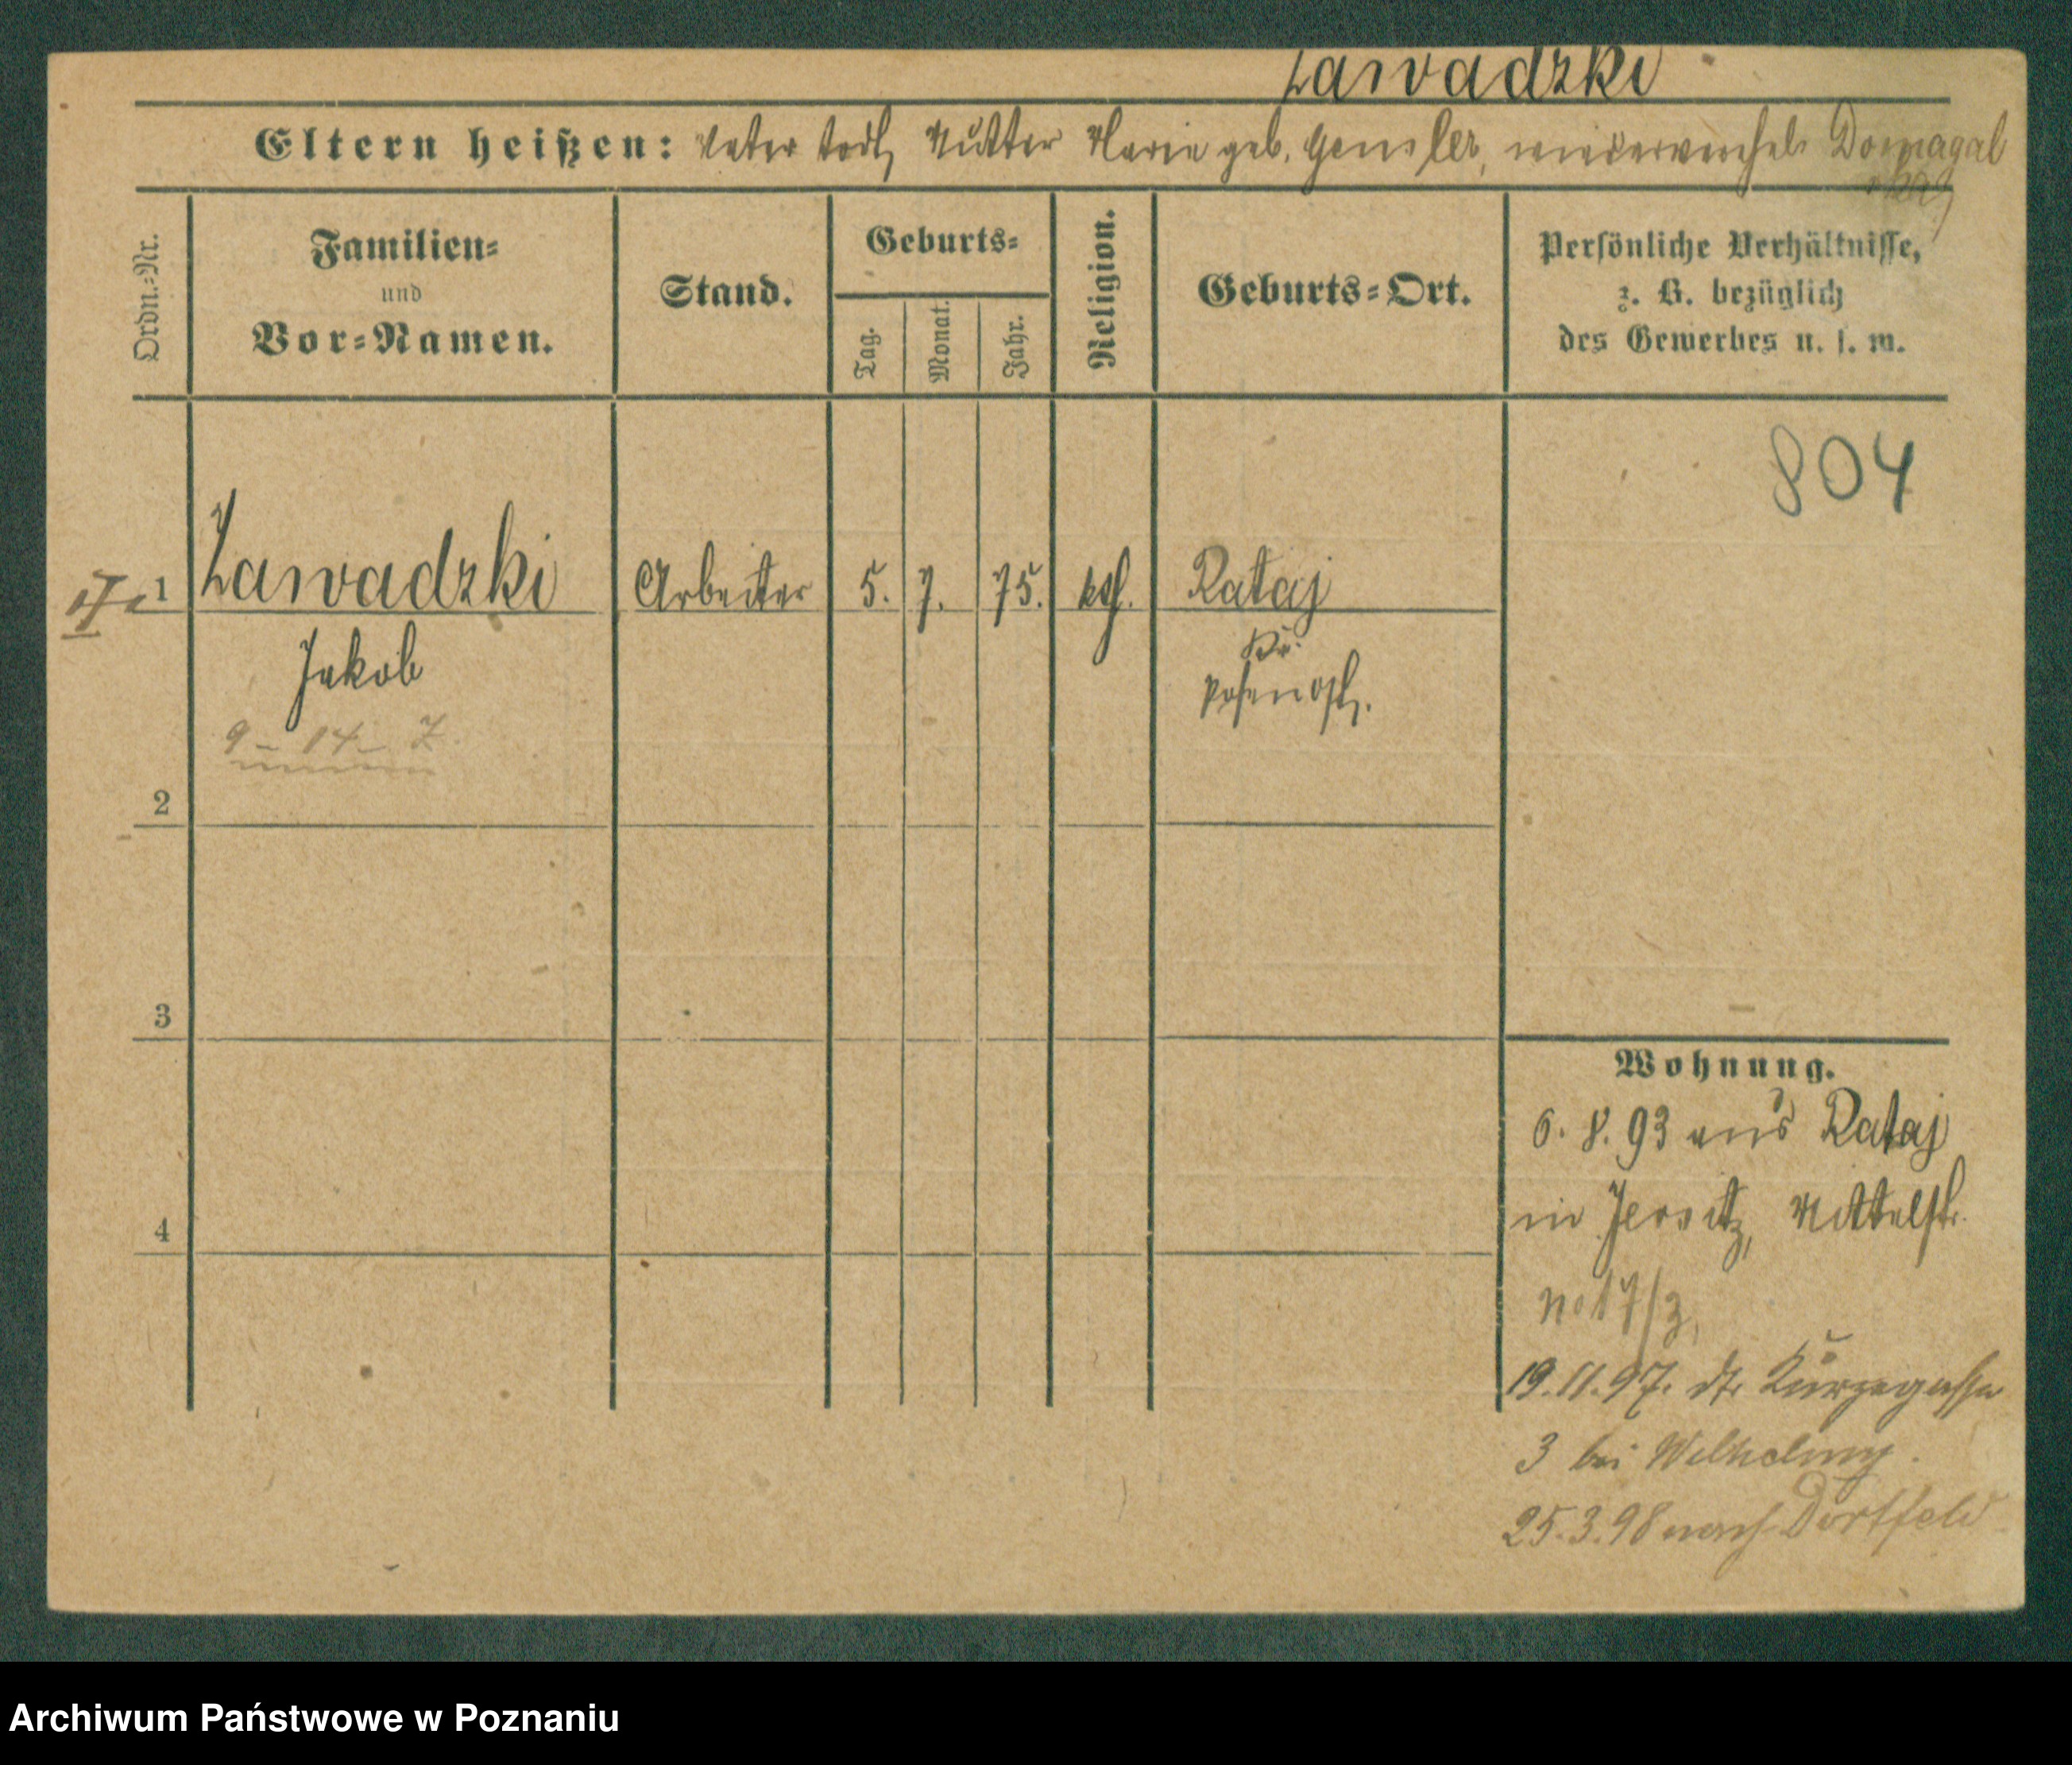 Zawadzki
Eltern heißen: Vater todt, Mutter Marie geb. Gensler, wiederverehel. Domagal
ska
Ordn.-Nr.
Familien-
und
Vor-Namen.
Stand.
Geburts-
Tag.
Monat.
Jahr.
Religion.
Geburts-Ort.
Persönliche Verhältnisse,
z. B. bezüglich
des Gewerbes u. s. w.
804
1 Zawadzki Arbeiter 5. 7. 75. kth. Rataj
Jakob
Kr.
Posen Ost.
9 - 14 - Z.
2
3
4
Wohnung.
6. 8. 93 aus Rataj
in Jersitz, Mittelstr.
No 17/3,
19.11.97. dtr Kurzegasse
3 bei Wilhelmy.
25.3.98 nach Dortfeld
Archiwum Państwowe w Poznaniu